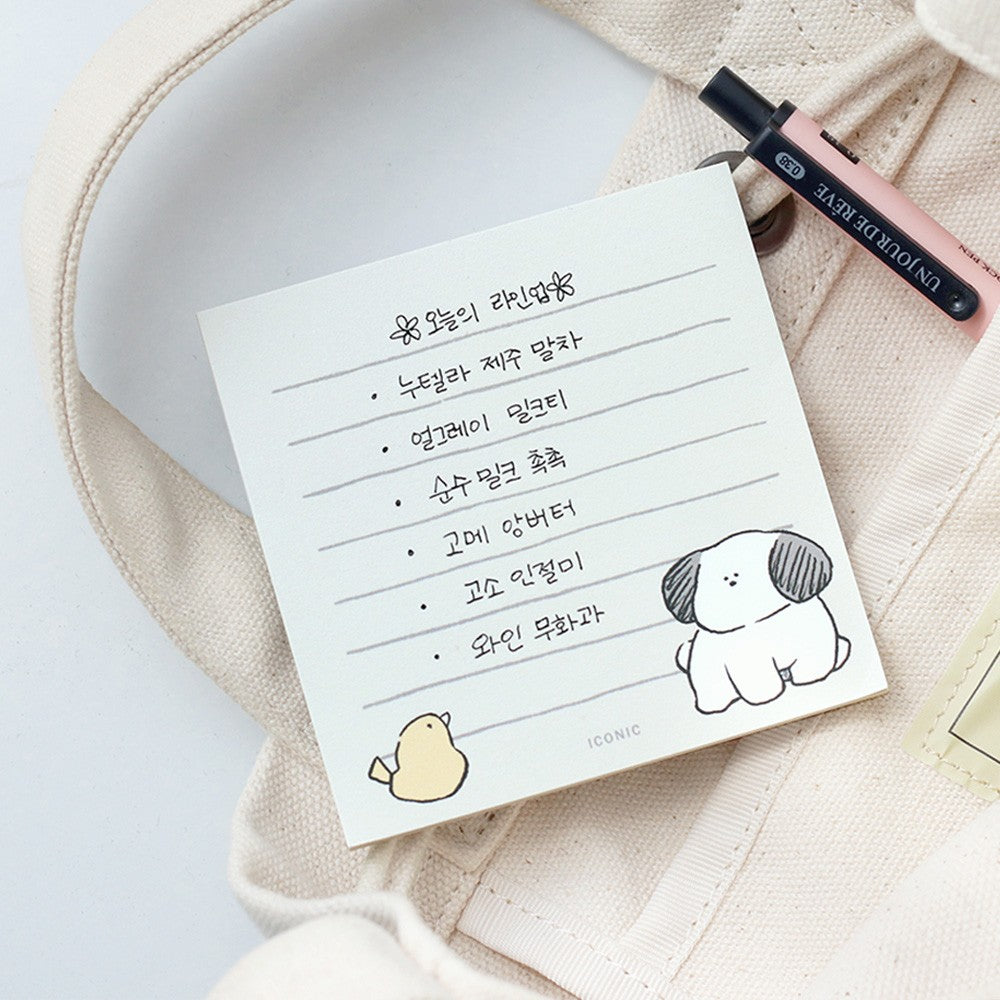 오늘의 라인업
· 누텔라 제주 말차
· 얼그레이 밀크티
· 순수밀크 촉촉
· 고메 앙버터
· 고소 인절미
· 와인 무화과
ICONIC
0.38
UN JOUR DE RÊVE
OCK PEN